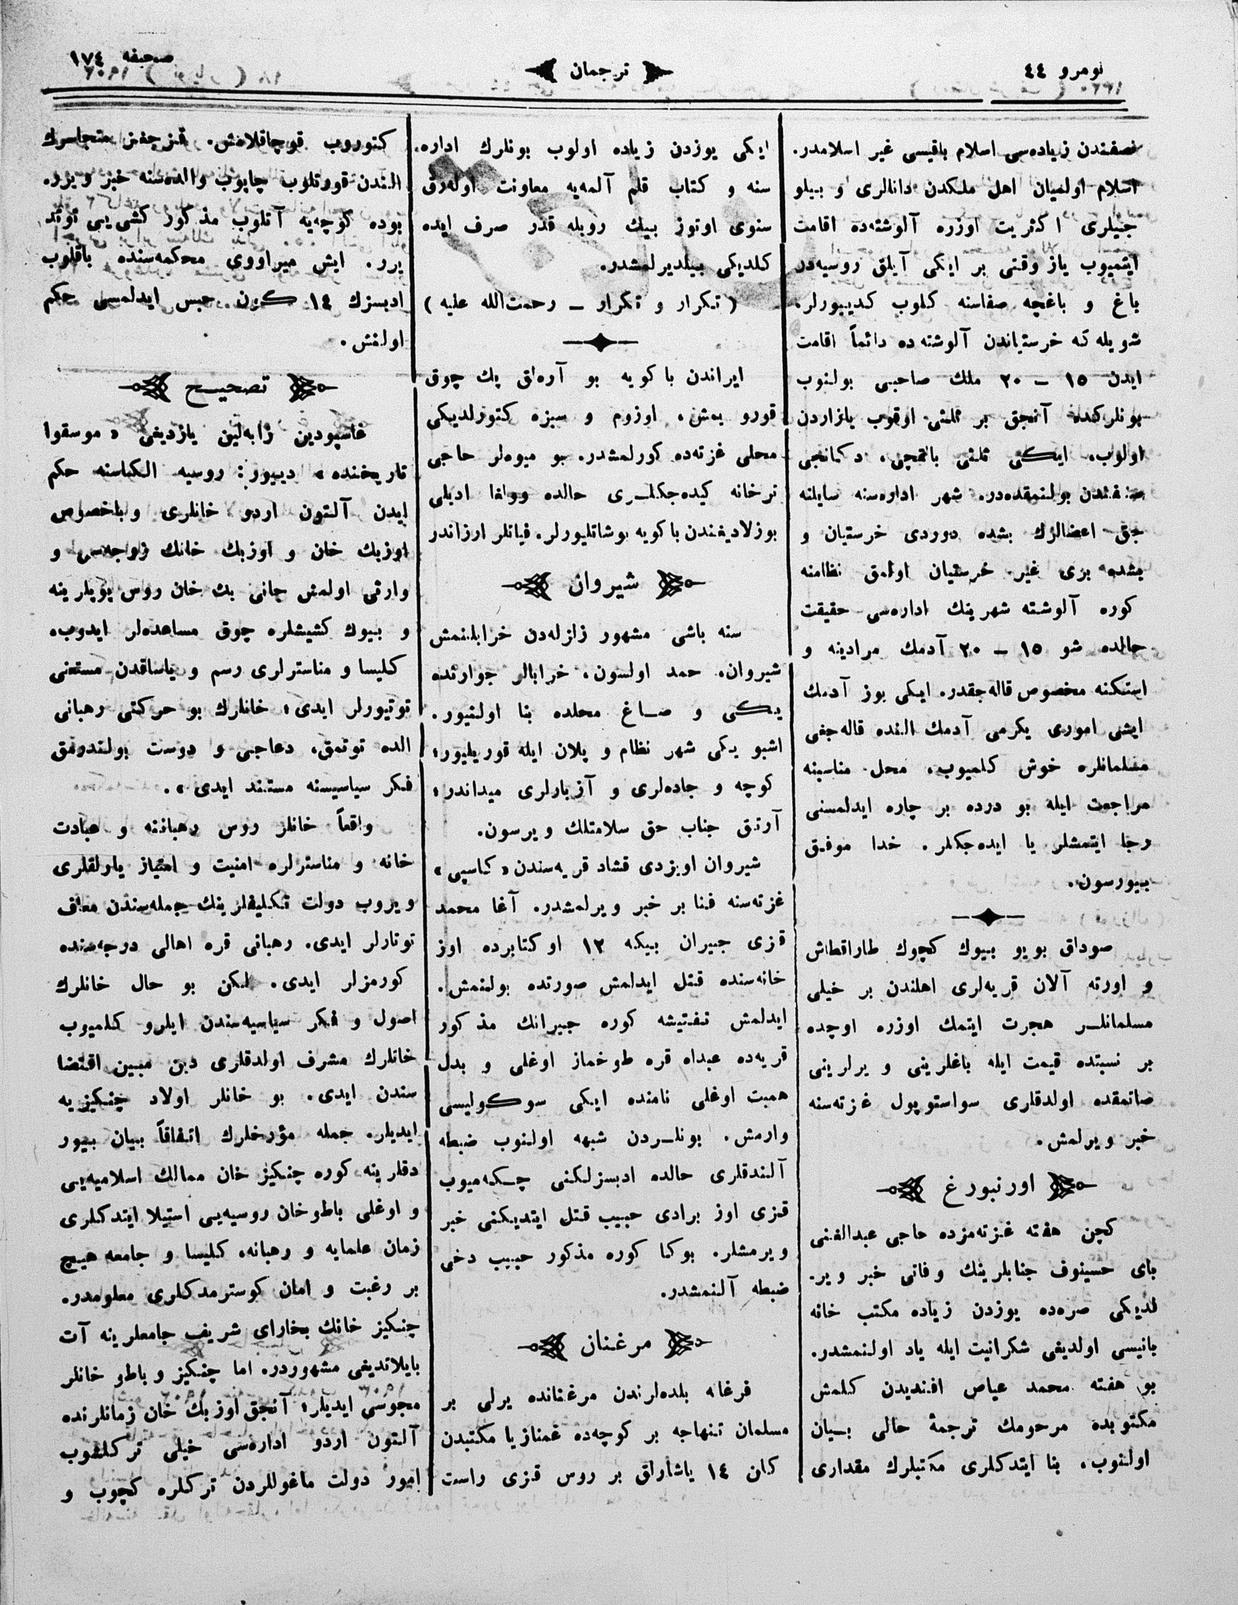 نومرو ٤٤
ترجمان
صحيفه ١٧٤
نصفندن زياده‌سى اسلام باقيسى غير اسلامدر.
اسلام اولميان اهل ملكدن دانالرى و بيلو
جنيلرى اكثريت اوزره آلوشته‌ده اقامت
ايتميوب ياز وقتى بر ايكى آيلق روسيه‌دن
باغ و باغچه صفاسنه كلوب كديبورلر.
شويله‌كه خرستياندن آلوشته‌ده دائماً اقامت
ايدن ١٥ – ٢٠ ملك صاحبى بولنوب
بونلركده آنجق بر ثلثى اوقوب يازاردن
اولوب، ايكى ثلثى بالقجى، دكمانجى
صنفندن بولنمقده‌در. شهر اداره‌سنه سايلنه
جق اعضالرك بشده دوردى خرستيان و
بشده برى غير خرستيان اولمق نظامنه
كوره آلوشته شهرينك اداره‌سى حقيقت
حالده شو ١٥ – ٢٠ آدمك مرادينه و
استكنه مخصوص قاله‌جقدر. ايكى يوز آدمك
ايشى امورى يكرمى آدمك النده قاله‌جغى
مسلمانلره خوش كلميوب، محل مناسبنه
مراجعت ايله بو درده بر چاره ايدلمسنى
رجا ايتمشلر يا ايده‌جكلر. خدا موفق
بيورسون.
صوداق بويو بيوك كچوك طاراقطاش
و اورته آلان قريه‌لرى اهلندن بر خيلى
مسلمانلر هجرت ايتمك اوزره اوچده
بر نسبتده قيمت ايله باغلرينى و يرلرينى
صاتمقده اولدقلرى سواستوپول غزته‌سنه
خبر ويرلمش.
اورنبورغ
كچن هفته غزته‌مزده حاجى عبدالغنى
باى حسينوف جنابلرينك وفاتى خبر وير.
لديكى صره‌ده يوزدن زياده مكتب خانه
بانيسى اولديغى شكرانيت ايله ياد اولنمشدر.
بو هفته محمد عياض افنديدن كلمش
مكتوبده مرحومك ترجمۀ حالى بيان
اولنوب، بنا ايتدكلرى مكتبلرك مقدارى
ايكى يوزدن زياده اولوب بونلرك اداره.
سنه و كتاب قلم آلمه‌يه معاونت اوله‌رق
سنوى اوتوز بيك روبله قدر صرف ايده
كلديكى بيلديرلمشدر.
(تكرار و تكرار – رحمت‌الله عليه)
ايراندن باكويه بو آره‌لق پك چوق
قورو يمش، اوزوم و سبزه كتورلديكى
محلى غزته‌ده كورلمشدر. بو ميوه‌لر حاجى
ترخانه كيده‌جكلرى حالده وولغا اديلى
بوزلاديغندن باكويه بوشاتليورلر. فياتلر ارزاندر
شيروان
سنه باشى مشهور زلزله‌دن خرابلنمش
شيروان، حمد اولسون، خرابالر جوارنده
يكى و صاغ محلده بنا اولنيور.
اشبو يكى شهر نظام و پلان ايله قوريليور،
كوچه و جاده‌لرى و آزبارلرى ميداندر،
آرتق جناب حق سلامتلك ويرسون.
شيروان اويزدى قشاد قريه‌سندن «كاسپى»
غزته‌سنه فنا بر خبر ويرلمشدر. آغا محمد
قزى جيران بيكه ١٢ اوكتابرده اوز
خانه‌سنده قتل ايدلمش صورتده بولنمش.
ايدلمش تفتيشه كوره جيرانك مذكور
قريه‌ده عبداه قره طوخماز اوغلى و بدل
همت اوغلى نامنده ايكى سوكوليسى
وارمش. بونلردن شبهه اولنوب ضبطه
آلندقلرى حالده ادبسزلكنى چكه‌ميوب
قزى اوز برادى حبيب قتل ايتديكنى خبر
ويرمشلر. بوكا كوره مذكور حبيب دخى
ضبطه آلنمشدر.
مرغنان
فرغانه بلده‌لرندن مرغنانده يرلى بر
مسلمان تنهاجه بر كوچه‌ده غمنازيا مكتبدن
كان ١٤ ياشاراق بر روس قزى راست
كتوروب قوچاقلامش. قزجغز متجاسرك
الندن قورتلوب چابوب والده‌سنه خبر ويرر.
بوده كوچه‌يه آتلوب مذكور كشى‌يى توتد
يرر. ايش ميراووى محكمه‌سنده باقلوب
ادبسزك ١٤ كون حبس ايدلمسى حكم
اولنمش.
تصحيح
غاسپودين زابه‌لين يازديغى «موسقوا
تاريخنده» ديبور: روسيه الكباسنه حكم
ايدن آلتون اردو خانلرى و باخصوص
اوزبك خان و اوزبك خانك زوجه‌سى و
وارثى اولمش جانى بك خان روس پوپلرينه
و بيوك كشيشلره چوق مساعده‌لر ايدوب،
كليسا و مناسترلرى رسم و ياساقدن مستثنى
توتيورلر ايدى؛ خانلرك بو حركتى رهبانى
الده توتمق، دعاجى و دوست بولندرمق
فكر سياسيسنه مستند ايدى».
واقعاً خانلر روس رهباننه و عبادت
خانه و مناسترلره امنيت و امتياز يارلقلرى
ويروب دولت تكليفلرينك جمله‌سندن معاف
توتارلر ايدى. رهبانى قره اهالى درجه‌سنده
كورمزلر ايدى. لكن بو حال خانلرك
اصول و فكر سياسيه‌سندن ايلرو كلميوب
خانلرك مشرف اولدقلرى دين مبين اقتضا
سندن ايدى. بو خانلر اولاد چنكيزيه
ايديلر. جمله مؤرخلرك اتفاقاً بيان بيور
دقلرينه كوره چنكيز خان ممالك اسلاميه‌يى
و اوغلى باطوخان روسيه‌يى استيلا ايتدكلرى
زمان علمايه و رهبانه، كليسا و جامعه هيچ
بر رغبت و امان كوسترمدكلرى معلومدر.
چنكيز خانك بخاراى شريف جامعلرينه آت
بايلاتديغى مشهوردر. اما چنكيز و باطو خانلر
مجوسى ايديلر؛ آنجق اوزبك خان زمانلرنده
آلتون اردو اداره‌سى خيلى تركلشوب
امور دولت ماغوللردن تركلره كچوب و